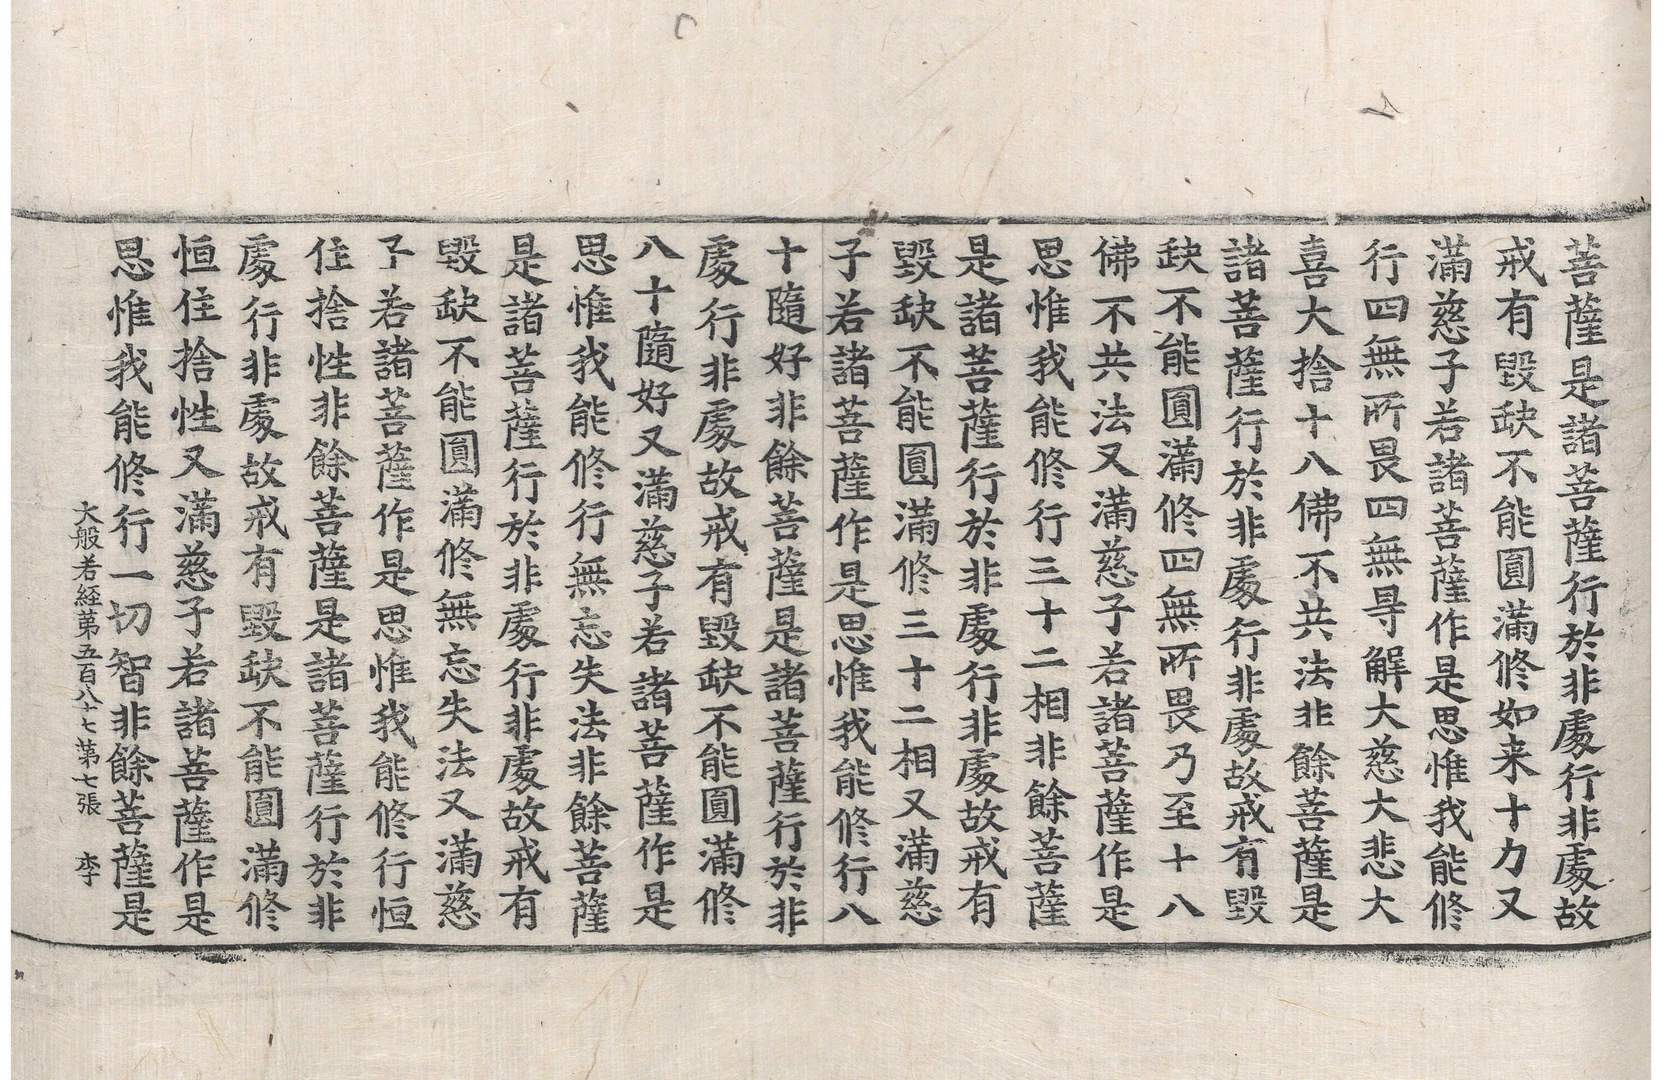 菩薩是諸菩薩行於非處行非處故
戒有毀缺不能圓滿修如来十力又
滿慈子若諸菩薩作是思惟我能修
行四無所畏四無㝵解大慈大悲大
喜大捨十八佛不共法非餘菩薩是
諸菩薩行於非處行非處故戒有毀
缺不能圓滿修四無所畏乃至十八
佛不共法又滿慈子若諸菩薩作是
思惟我能修行三十二相非餘菩薩
是諸菩薩行於非處行非處故戒有
毀缺不能圓滿修三十二相又滿慈
子若諸菩薩作是思惟我能修行八
十隨好非餘菩薩是諸菩薩行於非
處行非處故戒有毀缺不能圓滿修
八十隨好又滿慈子若諸菩薩作是
思惟我能修行無忘失法非餘菩薩
是諸菩薩行於非處行非處故戒有
毀缺不能圓滿修無忘失法又滿慈
子若諸菩薩作是思惟我能修行恒
住捨性非餘菩薩是諸菩薩行於非
處行非處故戒有毀缺不能圓滿修
恒住捨性又滿慈子若諸菩薩作是
思惟我能修行一切智非餘菩薩是
大般若経第五百八十七第七張 李